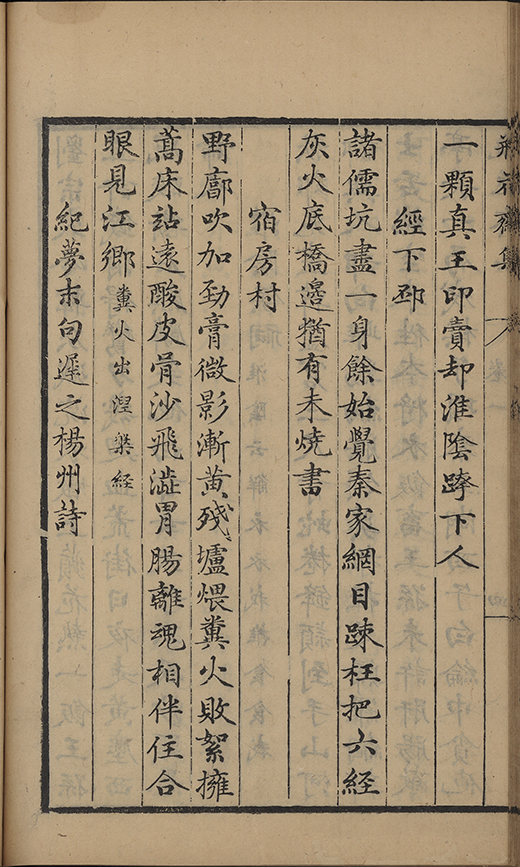 一顆真王印賣却淮陰跨下人
經下邳
諸儒坑盡一身餘始覺秦家網目踈枉把六經
灰火底橋邊猶有未燒書
宿房村
野廓吹加勁膏微影漸黃殘壚煨糞火敗絮擁
蒿床站遠酸皮骨沙飛澁胃腸離魂相伴住合
眼見江鄉糞火出涅槃經
紀夢末句遲之楊州詩